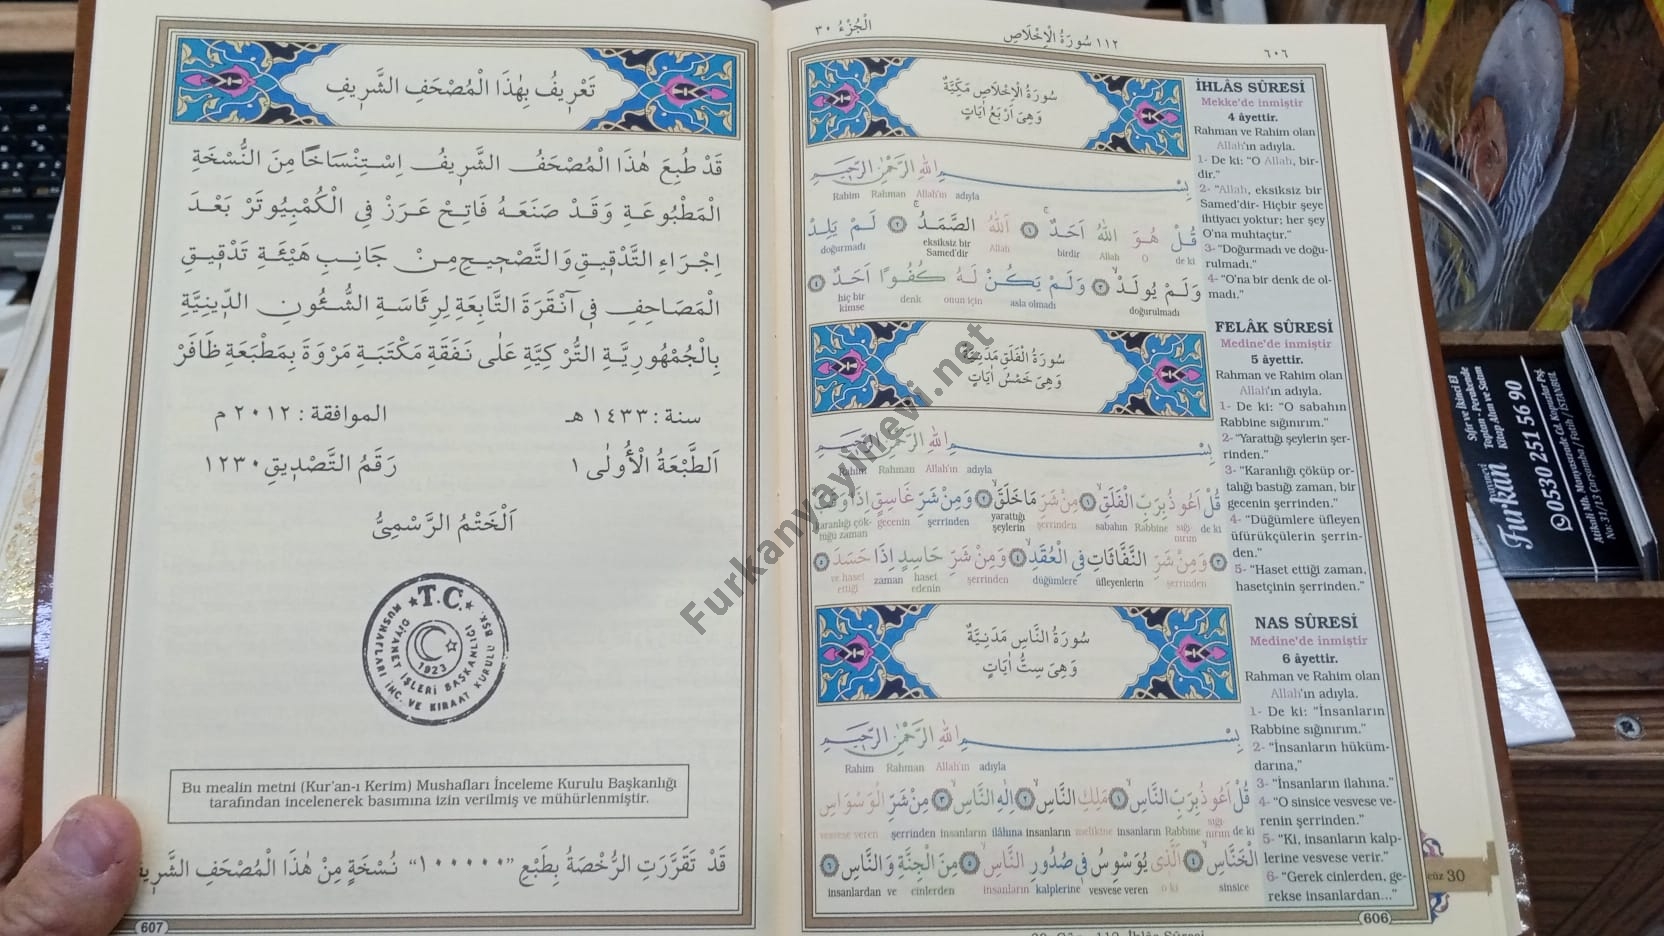 ٦٠٦
١١٢ سُورَةُ الْاِخْلَاصِ
الْجُزْءُ ٣٠
سُورَةُ الْاِخْلَاصِ مَكِّيَّةٌ
وَهِىَ اَرْبَعُ اٰيَاتٍ
بِسْمِ اللّٰهِ الرَّحْمٰنِ الرَّحٖيمِ
adıyla Allah'ın Rahman Rahim
قُلْ هُوَ اللّٰهُ اَحَدٌ ١ اَللّٰهُ الصَّمَدُ ٢ لَمْ يَلِدْ
de ki O Allah birdir Allah eksiksiz bir Samed'dir doğurmadı
وَلَمْ يُولَدْ ٣ وَلَمْ يَكُنْ لَهُ كُفُوًا اَحَدٌ ٤
doğurulmadı asla olmadı onun için denk hiç bir kimse
سُورَةُ الْفَلَقِ مَدَنِيَّةٌ
وَهِىَ خَمْسُ اٰيَاتٍ
بِسْمِ اللّٰهِ الرَّحْمٰنِ الرَّحٖيمِ
adıyla Allah'ın Rahman Rahim
قُلْ اَعُوذُ بِرَبِّ الْفَلَقِ ١ مِنْ شَرِّ مَا خَلَقَ ٢ وَمِنْ شَرِّ غَاسِقٍ اِذَا وَقَبَ
de ki sığınırım Rabbine sabahın şerrinden yarattığı şeylerin şerrinden gecenin karanlığı çöktüğü zaman
٣ وَمِنْ شَرِّ النَّفَّاثَاتِ فِي الْعُقَدِ ٤ وَمِنْ شَرِّ حَاسِدٍ اِذَا حَسَدَ ٥
şerrinden üfleyenlerin düğümlere şerrinden haset edenin zaman ve haset ettiği
سُورَةُ النَّاسِ مَدَنِيَّةٌ
وَهِىَ سِتُّ اٰيَاتٍ
بِسْمِ اللّٰهِ الرَّحْمٰنِ الرَّحٖيمِ
adıyla Allah'ın Rahman Rahim
قُلْ اَعُوذُ بِرَبِّ النَّاسِ ١ مَلِكِ النَّاسِ ٢ اِلٰهِ النَّاسِ ٣ مِنْ شَرِّ الْوَسْوَاسِ
de ki sığınırım Rabbine insanların melikine insanların ilâhına insanların şerrinden vesvese veren
الْخَنَّاسِ ٤ اَلَّذِى يُوَسْوِسُ فِى صُدُورِ النَّاسِ ٥ مِنَ الْجِنَّةِ وَالنَّاسِ ٦
sinsice o ki vesvese veren kalplerine insanların cinlerden insanlardan ve
İHLÂS SÛRESİ
Mekke'de inmiştir
4 âyettir.
Rahman ve Rahim olan
Allah'ın adıyla.
1- De ki: "O Allah, bir-
dir."
2- "Allah, eksiksiz bir
Samed'dir- Hiçbir şeye
ihtiyacı yoktur; her şey
O'na muhtaçtır."
3- "Doğurmadı ve doğu-
rulmadı."
4- "O'na bir denk de ol-
madı."
FELÂK SÛRESİ
Medine'de inmiştir
5 âyettir.
Rahman ve Rahim olan
Allah'ın adıyla.
1- De ki: "O sabahın
Rabbine sığınırım."
2- "Yarattığı şeylerin şer-
rinden."
3- "Karanlığı çöküp or-
talığı bastığı zaman, bir
gecenin şerrinden."
4- "Düğümlere üfleyen
üfürükçülerin şerrin-
den."
5- "Haset ettiği zaman,
hasetçinin şerrinden."
NAS SÛRESİ
Medine'de inmiştir
6 âyettir.
Rahman ve Rahim olan
Allah'ın adıyla.
1- De ki: "İnsanların
Rabbine sığınırım."
2- "İnsanların hüküm-
darına,"
3- "İnsanların ilahına."
4- "O sinsice vesvese ve-
renin şerrinden."
5- "Ki, insanların kalp-
lerine vesvese verir."
6- "Gerek cinlerden, ge-
rekse insanlardan..."
cüz 30
606
تَعْرٖيفُ بِهٰذَا الْمُصْحَفِ الشَّرٖيفِ
قَدْ طُبِعَ هٰذَا الْمُصْحَفُ الشَّرٖيفُ اِسْتِنْسَاخًا مِنَ النُّسْخَةِ
الْمَطْبُوعَةِ وَقَدْ صَنَعَهُ فَاتِحْ عَرَزْ فِي الْكُمْبِيُوتَرْ بَعْدَ
اِجْرَاءِ التَّدْقٖيقِ وَالتَّصْحٖيحِ مِنْ جَانِبِ هَيْئَةِ تَدْقٖيقِ
الْمَصَاحِفِ فٖى آنْقَرَةَ التَّابِعَةِ لِرِئَاسَةِ الشُّئُونِ الدّٖينِيَّةِ
بِالْجُمْهُورِيَّةِ التُّرْكِيَّةِ عَلٰى نَفَقَةِ مَكْتَبَةِ مَرْوَةَ بِمَطْبَعَةِ ظَافَرْ
سنة : ١٤٣٣ هـ الموافقة : ٢٠١٢ م
اَلطَّبْعَةُ الْاُولٰى ١ رَقَمُ التَّصْدٖيقِ ١٢٣٠
اَلْخَتْمُ الرَّسْمِىُّ
★ T.C. ★
DİYANET İŞLERİ BAŞKANLIĞI
MUSHAFLARI İNC. VE KIRAAT KURULU BŞK.
1923
Bu mealin metni (Kur'an-ı Kerim) Mushafları İnceleme Kurulu Başkanlığı
tarafından incelenerek basımına izin verilmiş ve mühürlenmiştir.
قَدْ تَقَرَّرَتِ الرُّخْصَةُ بِطَبْعِ "١٠٠٠٠٠" نُسْخَةٍ مِنْ هٰذَا الْمُصْحَفِ الشَّرٖيفِ
607
Furkanyayinevi.net
Furkan
Yayınevi
Sıfır ve İkinci El
Toptan - Perakende
Kitap Alım ve Satım
0530 251 56 90
Atikali Mh. Manyasızade Cd. Kopuzlar Psj.
No: 31/13 Çarşamba / Fatih / İSTANBUL